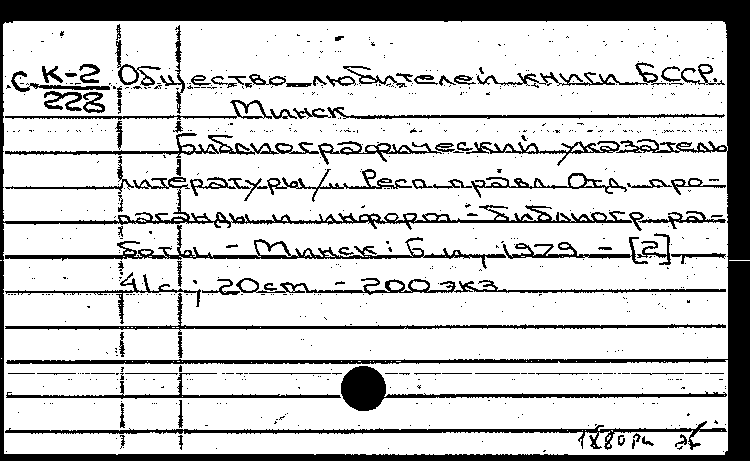 С К-2 Общество любителей книги БССР.
228 Минск
Библиографический указатель
литературы/... Респ. правл. Отд. про-
паганды и информ.-библиогр. ра-
боты. - Минск: Б. и., 1979 - [2],
41с.; 20см - 200экз